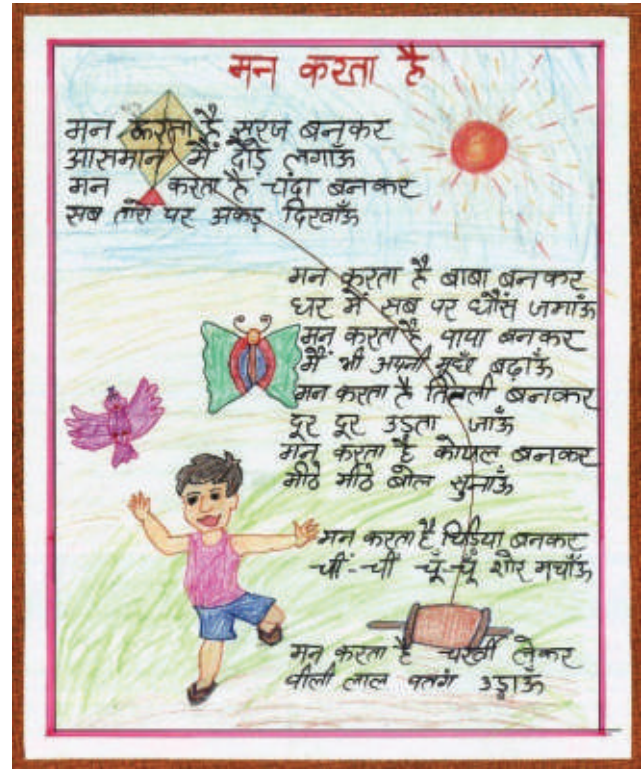 मन करता है
मन करता है सूरज बनकर
आसमान में दौड़ लगाऊँ
मन करता है चंदा बनकर
सब तारों पर अकड़ दिखाऊँ
मन करता है बाबा बनकर
घर में सब पर धौंस जमाऊँ
मन करता है पापा बनकर
मैं भी अपनी मूछें बढ़ाऊँ
मन करता है तितली बनकर
दूर दूर उड़ता जाऊँ
मन करता है कोयल बनकर
मीठे मीठे बोल सुनाऊँ
मन करता है चिड़िया बनकर
चीं-चीं चूँ-चूँ शोर मचाऊँ
मन करता है चर्खी लेकर
पीली लाल पतंग उड़ाऊँ